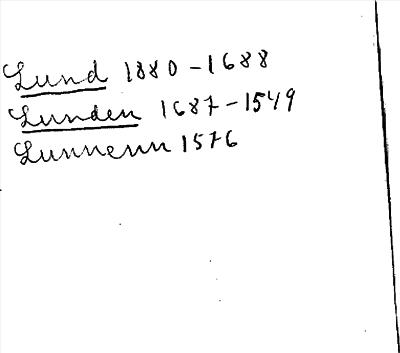 Lund 1880-1688
Lunden 1687-1549
Lunnenn 1576